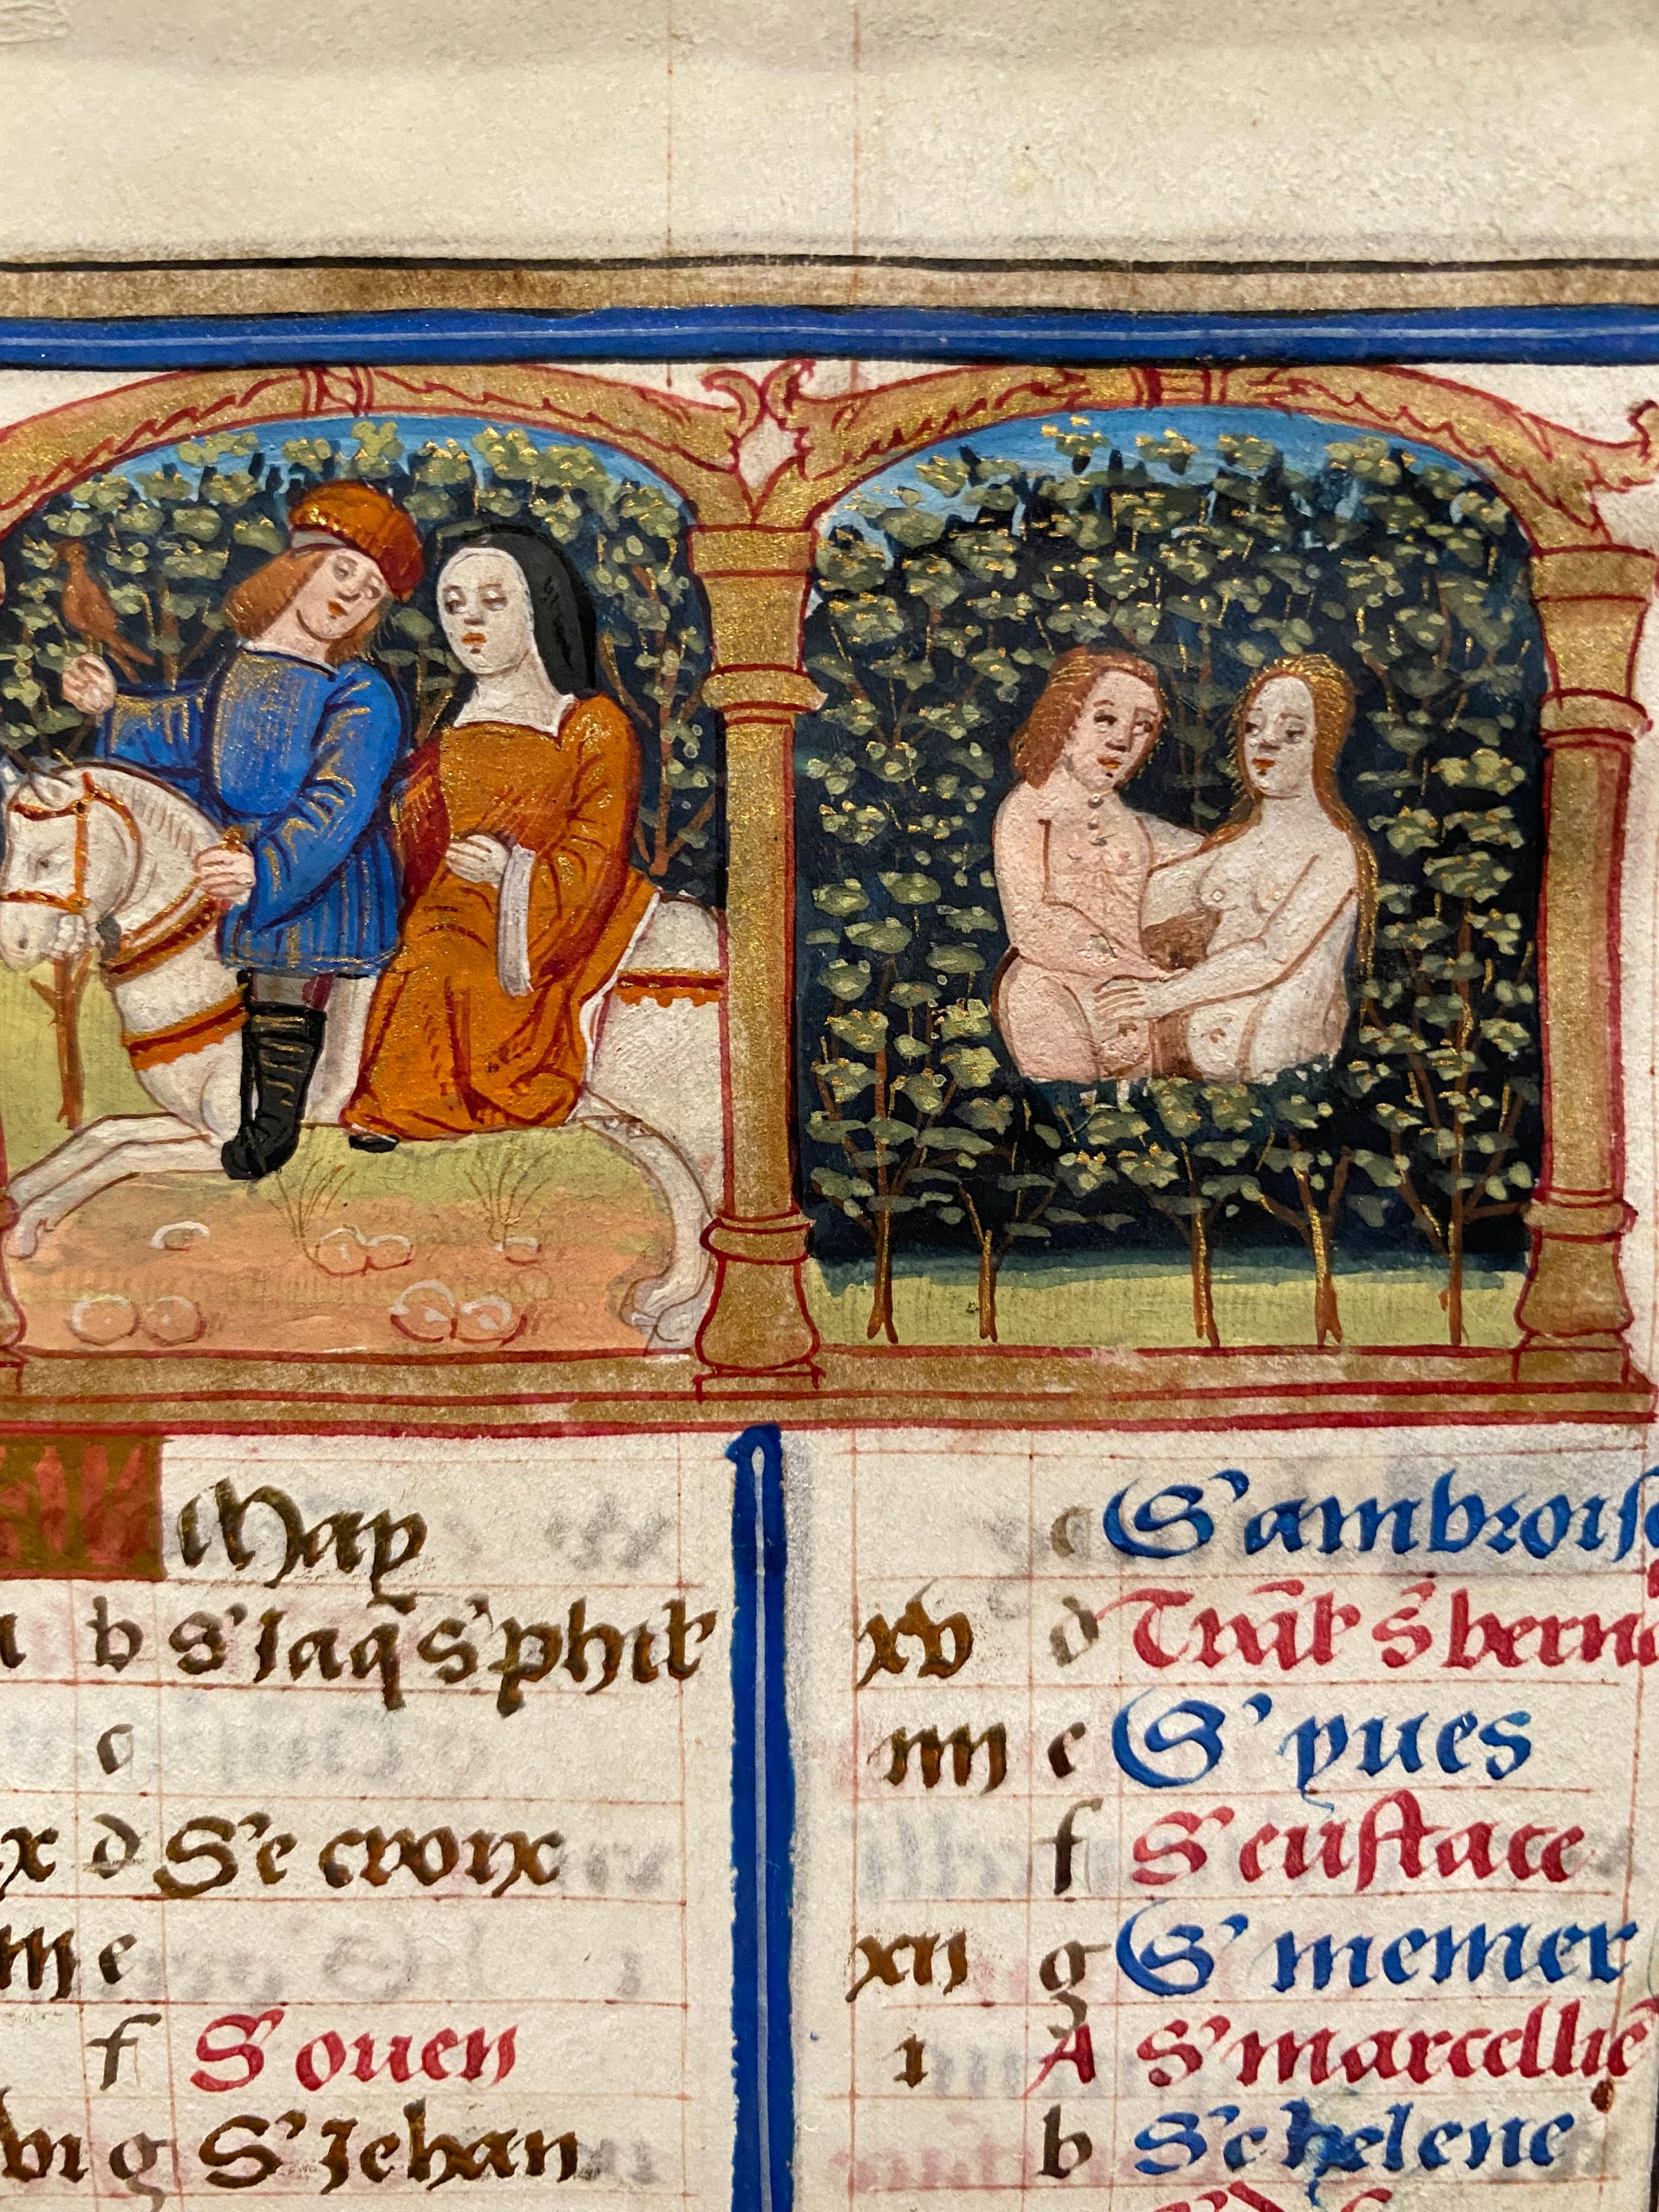 May
b S' Jaq S' phil
c
x d S'e croix
e
f S' ouen
vi g S' Jehan
c S' ambrois
xv d Trāsl' S' berna
iiii e S' yues
f S' eustace
xii g S' memer
i A S' marcellie
b S'e helene